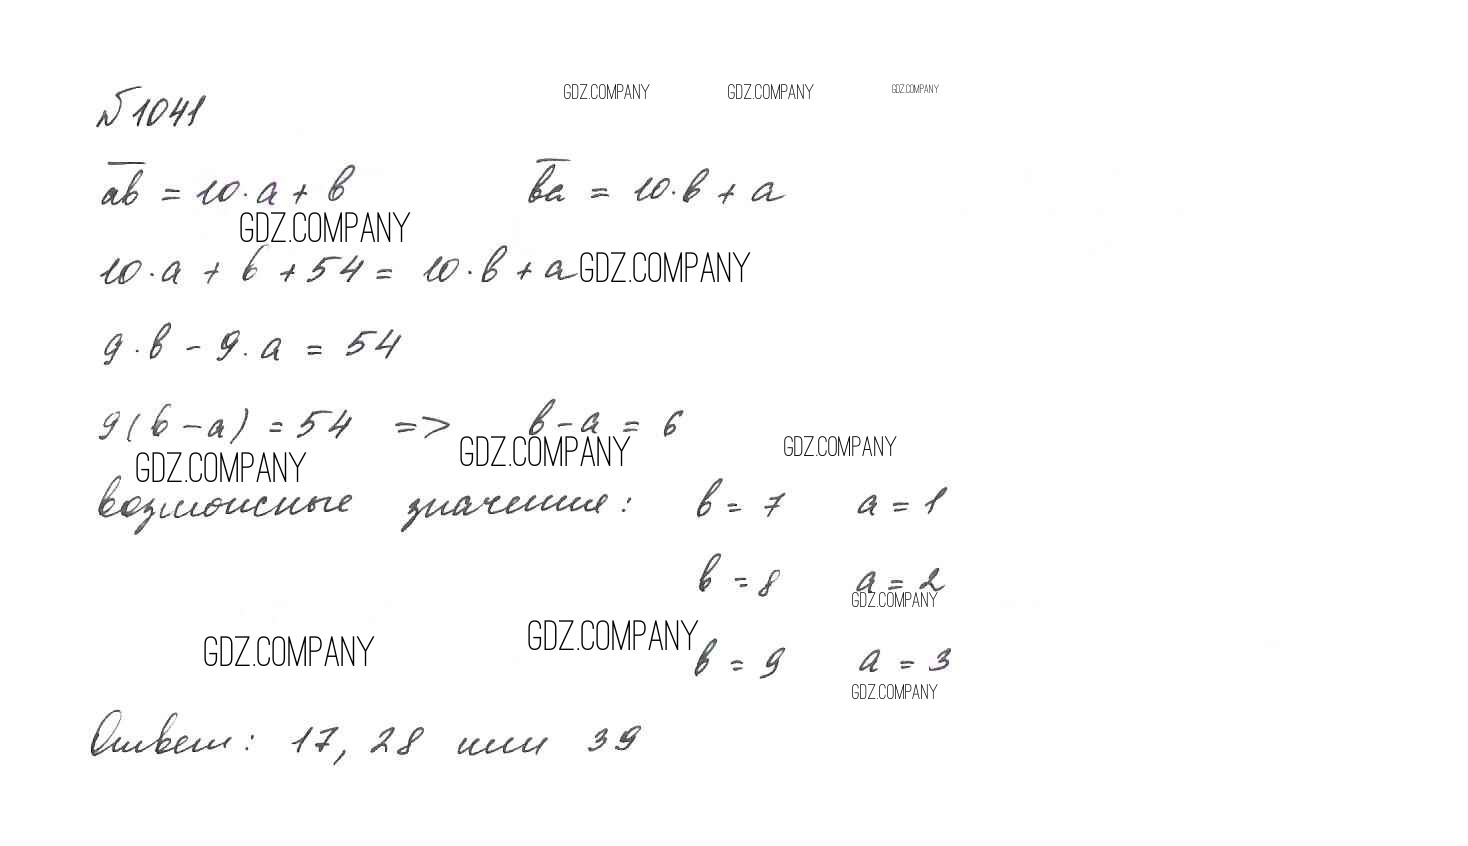 GDZ.COMPANY GDZ.COMPANY GDZ.COMPANY
№1041
ab = 10·a + b ba = 10·b + a
GDZ.COMPANY
10·a + b + 54 = 10·b + a GDZ.COMPANY
9·b - 9·a = 54
9(b - a) = 54 => b - a = 6
GDZ.COMPANY GDZ.COMPANY GDZ.COMPANY
возможные значения: b = 7 a = 1
b = 8 a = 2
GDZ.COMPANY
GDZ.COMPANY GDZ.COMPANY
b = 9 a = 3
GDZ.COMPANY
Ответ: 17, 28 или 39